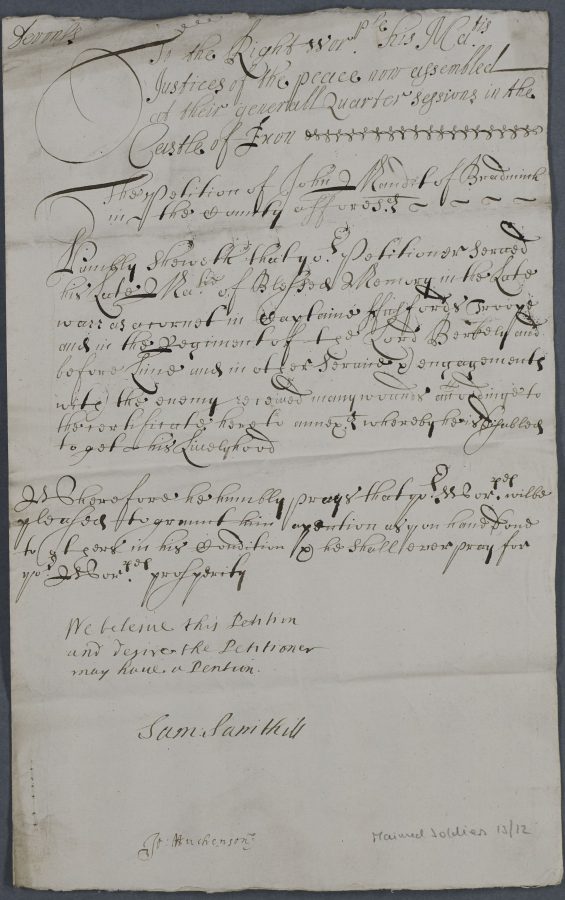 Devonss
To the Right Worple his Matis
Justices of the peace now assembled
at their generall Quarter sessions in the
Castle of Exon
The Petition of John Maudet of Bradninch
in the County afforesd
Humbly sheweth that yor Petitioner served
his Late Matie of Blessed Memory in the Late
warr as a cornet in Captaine Troope
and in the Regiment of the Lord Berkely and
before Lime and in other servise & engagements
with the enemy received many wounds according to
the certificate here to annexed whereby he is disabled
to get his Livelyhood
Wherefore he humbly prays that yor Worpps wilbe
pleased to graunt him a pention as you have done
to others in his Condition & he shall ever pray for
yor Worpps prosperity
We beleive this Petition
and desire the Petitioner
may have a Pention.
Sam: Sainthill
Jo: Huchenson
Maimed Soldier 13/12